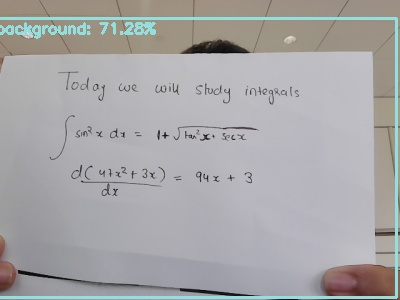 background: 71.28%
Today we will study integrals
∫ sin² x dx = 1 + √(tan² x + sec x)
d( 47x² + 3x ) / dx = 94x + 3